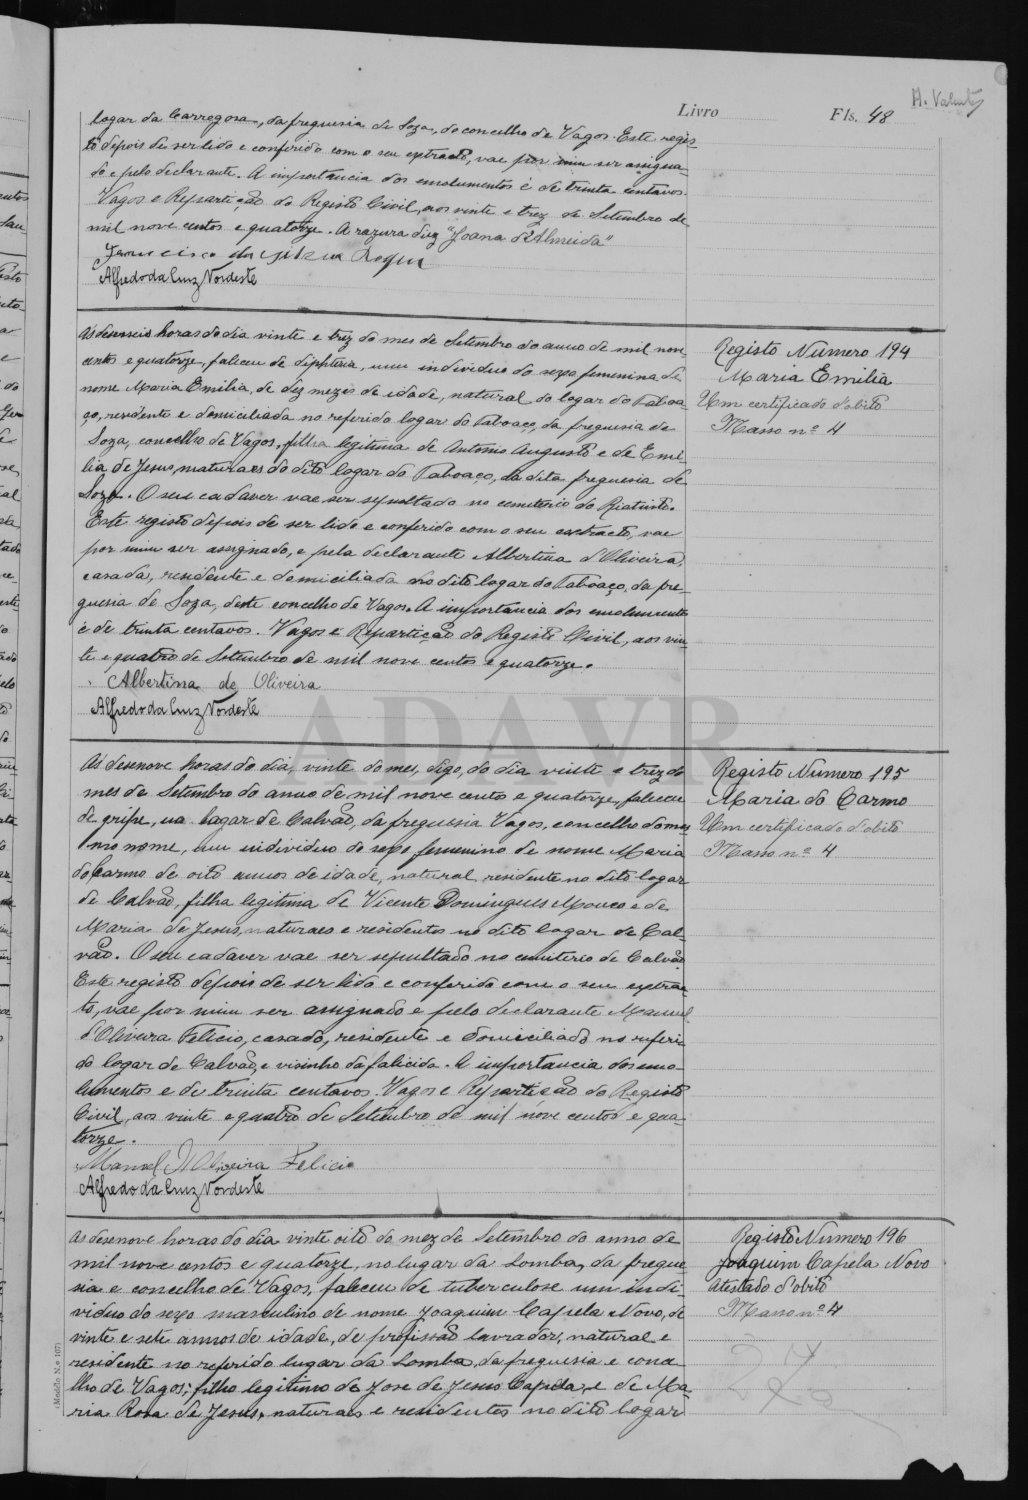 Livro Fls. 48
H. Valente
logar da Carregosa, da freguesia de Soza, do concelho de Vagos. Este regis-
to depois de ser lido e conferido com o seu extracto, vae por mim ser assigna-
do e pelo declarante. A importancia dos emolumentos é de trinta centavos.
Vagos e Repartição do Registo Civil, aos vinte e trez de Setembro de
mil nove centos e quatorze. A razura diz "Joana d'Almeida"
Francisco da
Alfredo da Cruz Nordeste
Ás deseseis horas do dia vinte e trez do mes de Setembro do anno de mil nove
centos e quatorze, faleceu de diphteria, um individuo do sexo femenina de
nome Maria Emilia, de dez mezes de idade, natural do logar do Taboa-
ço, residente e domiciliada no referido logar do Taboaço, da freguesia de
Soza, concelho de Vagos, filha legitima de Antonio Augusto e de Emi-
lia de Jesus, naturaes do dito logar do Taboaço, da dita freguesia de
Soza. O seu cadaver vae ser sepultado no cemiterio do Riatinto.
Este registo depois de ser lido e conferido com o seu extracto, vae
por mim ser assignado, e pela declarante Albertina d'Oliveira,
casada, residente e domiciliada no dito logar do Taboaço, da fre-
guesia de Soza, deste concelho de Vagos. A importancia dos emolumentos
é de trinta centavos. Vagos e Repartição do Registo Civil, aos vin-
te e quatro de Setembro de mil nove centos e quatorze.
Albertina de Oliveira
Alfredo da Cruz Nordeste
Registo Numero 194
Maria Emilia
Um certificado d'obito
Masso nº 4
ADAVR
Ás desenove horas do dia, vinte do mes, digo, do dia vinte e trez do
mes de Setembro do anno de mil nove cento e quatorze, faleceu
de gripe, no logar de Calvão, da freguesia Vagos, concelho do mes-
mo nome, um individuo do sexo femenino de nome Maria
do Carmo de oito annos de idade, natural residente no dito logar
de Calvão, filha legitima de Vicente Domingues Mouco e de
Maria de Jesus, naturaes e residentes no dito logar de Cal-
vão. O seu cadaver vae ser sepultado no cemiterio de Calvão
Este registo depois de ser lido e conferido com o seu extrac-
to, vae por mim ser assignado e pelo declarante Manuel
d'Oliveira Felicio, casado, residente e domiciliado no referi-
do logar de Calvão, e visinho da falicida. A importancia dos emo-
lumentos e de trinta centavos. Vagos e Repartição do Registo
Civil, aos vinte e quatro de Setembro de mil nove centos e qua-
torze.
Manuel d'Oliveira Felicio
Alfredo da Cruz Nordeste
Registo Numero 195
Maria do Carmo
Um certificado d'obito
Masso nº 4
As desenove horas do dia vinte oito do mez de Setembro do anno de
mil nove centos e quatorze, no lugar da Lomba, da fregue-
sia e concelho de Vagos, faleceu de tuberculose um indi-
viduo do sexo masculino de nome Joaquim Capela Novo, de
vinte e sete annos de idade, de profissão lavrador, natural e
residente no referido lugar da Lomba, da freguesia e conce-
lho de Vagos; filho legitimo de Jose de Jesus Capela, e de Ma-
ria Rosa de Jesus, naturaes e residentes no dito logar
Registo Numero 196
Joaquim Capela Novo
Atestado d'obito
Masso nº 4
27
(Modêlo N.º 107)